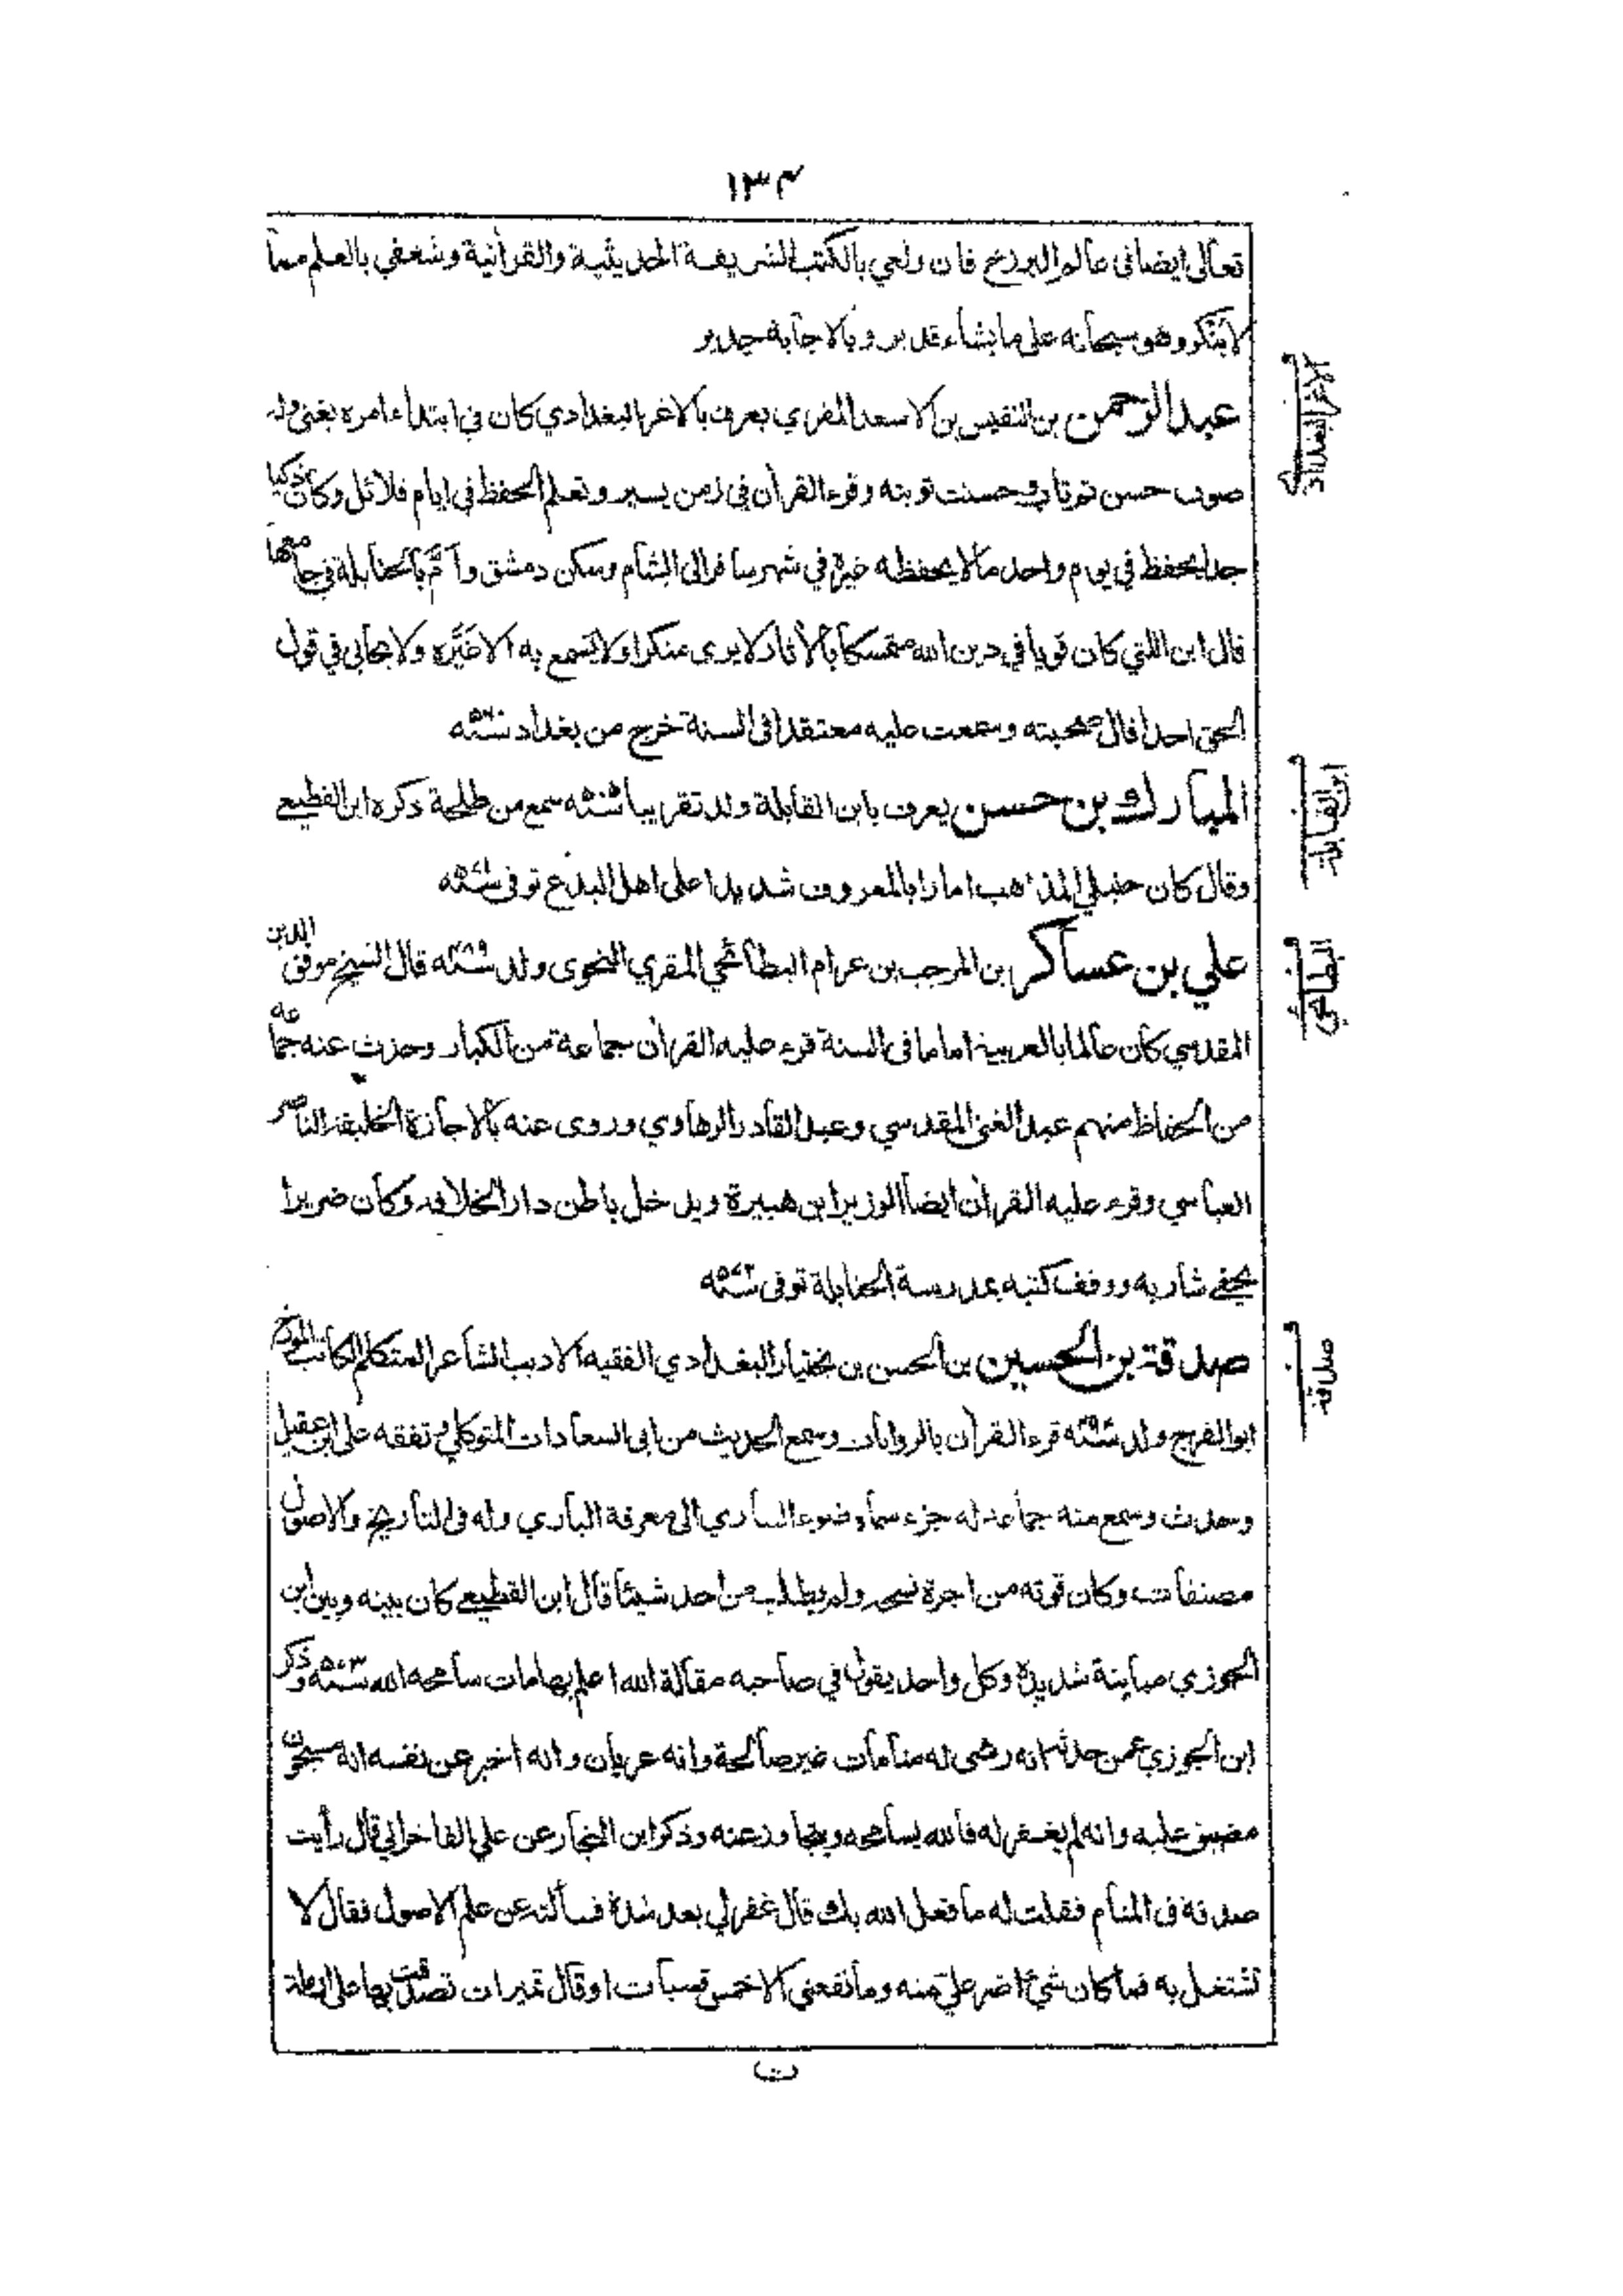 ١٣٤
تعالى ايضا فى عالم البرزخ فان ولعي بالكتب الشريفة الحديثية والقرآنية وشغفي بالعلم مما
لا ينكر وهو سبحانه على ما يشاء قدير وبالاجابة جدير
عبد الرحمن بن النفيس بن الاسعد المقري يعرف بالاغر البغدادي كان في ابتداء امره يغني وله
صوت حسن ثم تاب وحسنت توبته وقرء القرآن في زمن يسير وتعلم الحفظ في ايام قلائل وكان ذكيا
جدا يحفظ في يوم واحد ما لا يحفظه غيره في شهر سافر الى الشام وسكن دمشق وأمّ بالحنابلة في جامعها
قال ابن اللتي كان قويا في دين الله متمسكا بالآثار لا يرى منكرا ولا يسمع به الا غيّره ولا يحابي في قول
الحق احدا قال صحبته وسمعت عليه معتقدا فى السنة خرج من بغداد سنة
المبارك بن حسن يعرف بابن القابلة ولد تقريبا سنة سمع من طلحة ذكره ابن القطيعي
وقال كان حنبلي المذهب امارا بالمعروف شديدا على اهل البدع توفى سنة
علي بن عساكر بن المرحب بن عرام البطائحي المقري النحوى ولد سنة ٤٨٩ قال الشيخ موفق الدين
المقدسي كان عالما بالعربية اماما فى السنة قرء عليه القرآن جماعة من الكبار وحدث عنه جماعة
من الحفاظ منهم عبد الغني المقدسي وعبد القادر الرهاوي وروى عنه بالاجازة الخليفة الناصر
العباسي وقرء عليه القرآن ايضا الوزير ابن هبيرة ويدخل باطن دار الخلافة وكان ضريرا
يحفي شاربه ووقف كتبه بمدرسة الحنابلة توفى سنة ٥٧٢
صدقة بن الحسين بن الحسن بن بختيار البغدادي الفقيه الاديب الشاعر المتكلم الكاتب المورخ
ابو الفرج ولد سنة قرء القرآن بالروايات وسمع الحديث من ابى السعادات المتوكلي وتفقه على ابن عقيل
وحدث وسمع منه جماعة له جزء سماه ضوء الساري الى معرفة الباري وله فى التاريخ والاصول
مصنفات وكان قوته من اجرة نسخه ولم يطلب من احد شيئا قال ابن القطيعي كان بينه وبين ابن
الجوزي مباينة شديدة وكل واحد يقول في صاحبه مقالة الله اعلم بها مات سامحه الله سنة ٥٧٣ وذكر
ابن الجوزي عمن حدثه انه رئى له منامات غير صالحة وانه عريان وانه اخبر عن نفسه انه مسجون
مضيق عليه وانه لم يغفر له فالله يسامحه ويتجاوز عنه وذكر ابن النجار عن علي الفاخراني قال رأيت
صدقة فى المنام فقلت له ما فعل الله بك قال غفر لي بعد شدة فسألته عن علم الاصول فقال لا
تشتغل به فما كان شيء اضر علي منه وما نفعني الا خمس قصبات او قال تميرات تصدقت بها على ارملة
ت
الاغر البغدادي
ابن القابلة
البطائحي
صدقة